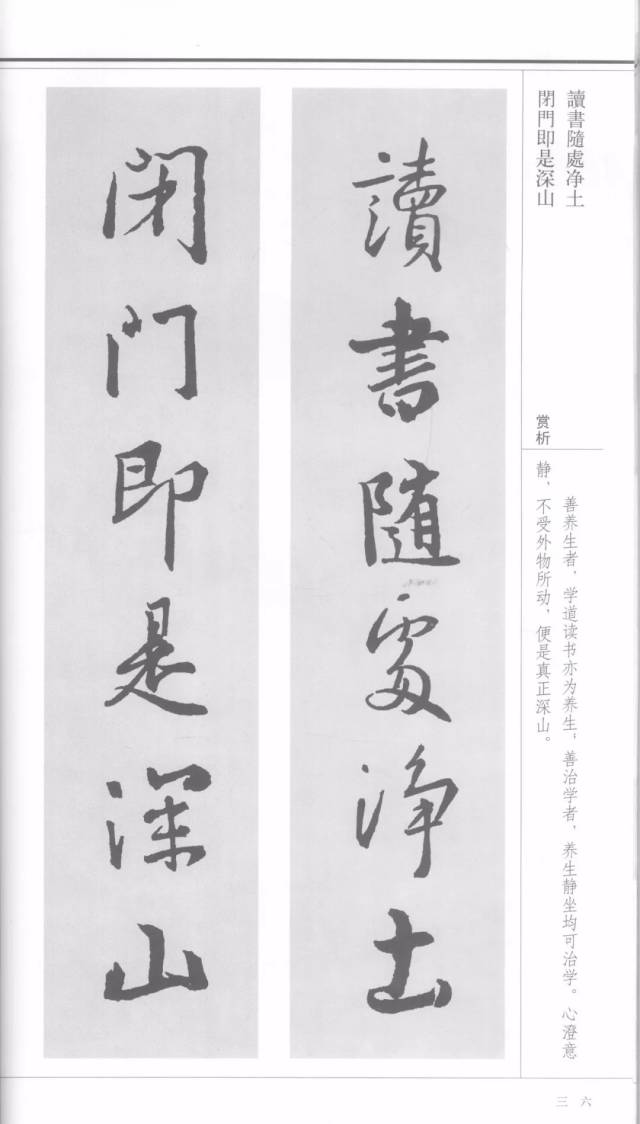 讀書隨處净土
閉門即是深山
赏析
善养生者，学道读书亦为养生；善治学者，养生静坐均可治学。心澄意
静，不受外物所动，便是真正深山。
讀書随處净土
閉門即是深山
三六